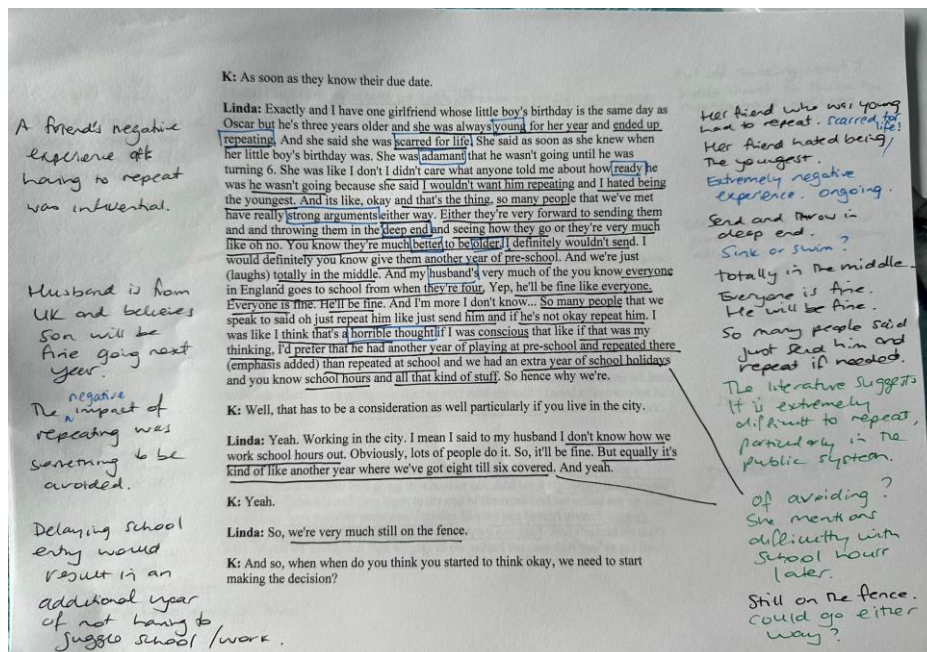 A friend's negative
experience of
having to repeat
was influential.
Husband is from
UK and believes
Son will be
fine going next
year.
The negative impact of
repeating was
something to be
avoided.
Delaying school
entry would
result in an
additional year
of not having to
juggle school/work.
K: As soon as they know their due date.
Linda: Exactly and I have one girlfriend whose little boy's birthday is the same day as
Oscar but he's three years older and she was always young for her year and ended up
repeating. And she said she was scarred for life. She said as soon as she knew when
her little boy's birthday was. She was adamant that he wasn't going until he was
turning 6. She was like I don't I didn't care what anyone told me about how ready he
was he wasn't going because she said I wouldn't want him repeating and I hated being
the youngest. And its like, okay and that's the thing, so many people that we've met
have really strong arguments either way. Either they're very forward to sending them
and and throwing them in the deep end and seeing how they go or they're very much
like oh no. You know they're much better to be older. I definitely wouldn't send. I
would definitely you know give them another year of pre-school. And we're just
(laughs) totally in the middle. And my husband's very much of the you know everyone
in England goes to school from when they're four, Yep, he'll be fine like everyone.
Everyone is fine. He'll be fine. And I'm more I don't know... So many people that we
speak to said oh just repeat him like just send him and if he's not okay repeat him. I
was like I think that's a horrible thought if I was conscious that like if that was my
thinking, I'd prefer that he had another year of playing at pre-school and repeated there
(emphasis added) than repeated at school and we had an extra year of school holidays
and you know school hours and all that kind of stuff. So hence why we're.
K: Well, that has to be a consideration as well particularly if you live in the city.
Linda: Yeah. Working in the city. I mean I said to my husband I don't know how we
work school hours out. Obviously, lots of people do it. So, it'll be fine. But equally it's
kind of like another year where we've got eight till six covered. And yeah.
K: Yeah.
Linda: So, we're very much still on the fence.
K: And so, when when do you think you started to think okay, we need to start
making the decision?
Her friend who was young
had to repeat. scarred for
life!
Her friend hated being
the youngest.
Extremely negative
experience. ongoing.
Send and throw in
deep end.
Sink or swim?
totally in the middle.
Everyone is fine.
He will be fine.
So many people said
just send him and
repeat if needed.
The literature suggests
It is extremely
difficult to repeat,
particularly in the
public system.
of avoiding?
She mentions
difficulty with
school hours
later.
Still on the fence.
could go either
way?